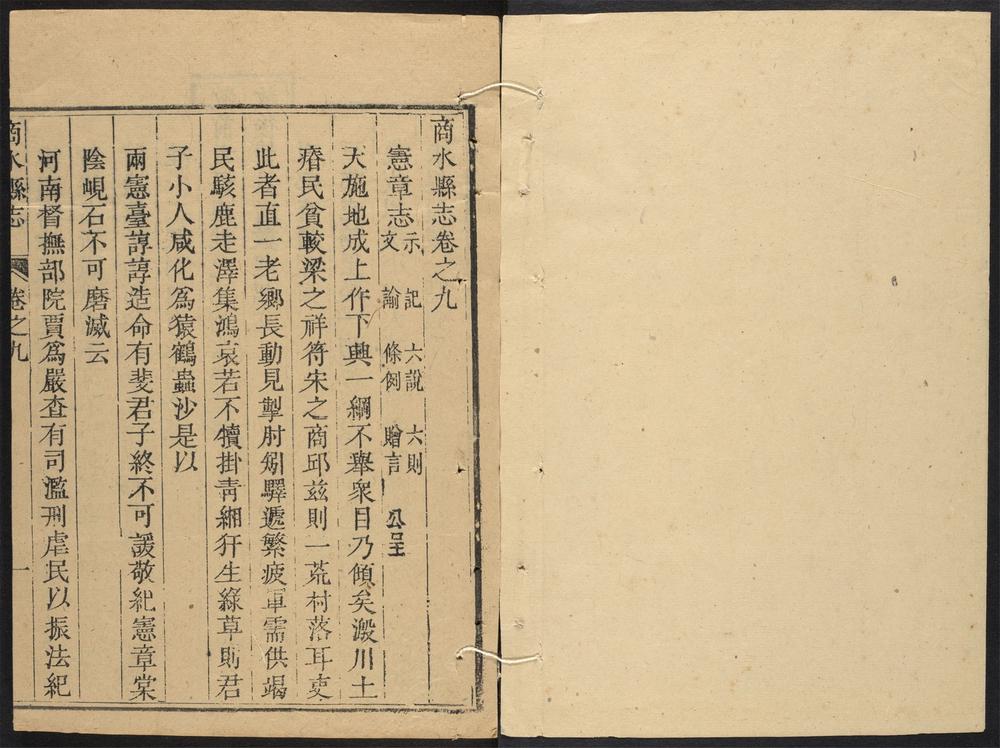 商水縣志卷之九
憲章志 示文 記諭 六說條例 六則贈言 公呈
天施地成上作下興一綱不舉衆目乃傾矣瀫川土
瘠民貧較梁之祥符宋之商邱兹則一荒村落耳吏
此者直一老鄉長動見掣肘矧驛遞繁疲軍需供竭
民駭鹿走澤集鴻哀若不犢掛青緗犴生綠草則君
子小人咸化爲猿鶴蟲沙是以
兩憲臺諄諄造命有斐君子終不可諼敬紀憲章棠
陰峴石不可磨滅云
河南督撫部院賈爲嚴查有司濫刑虐民以振法紀
商水縣志 卷之九 一